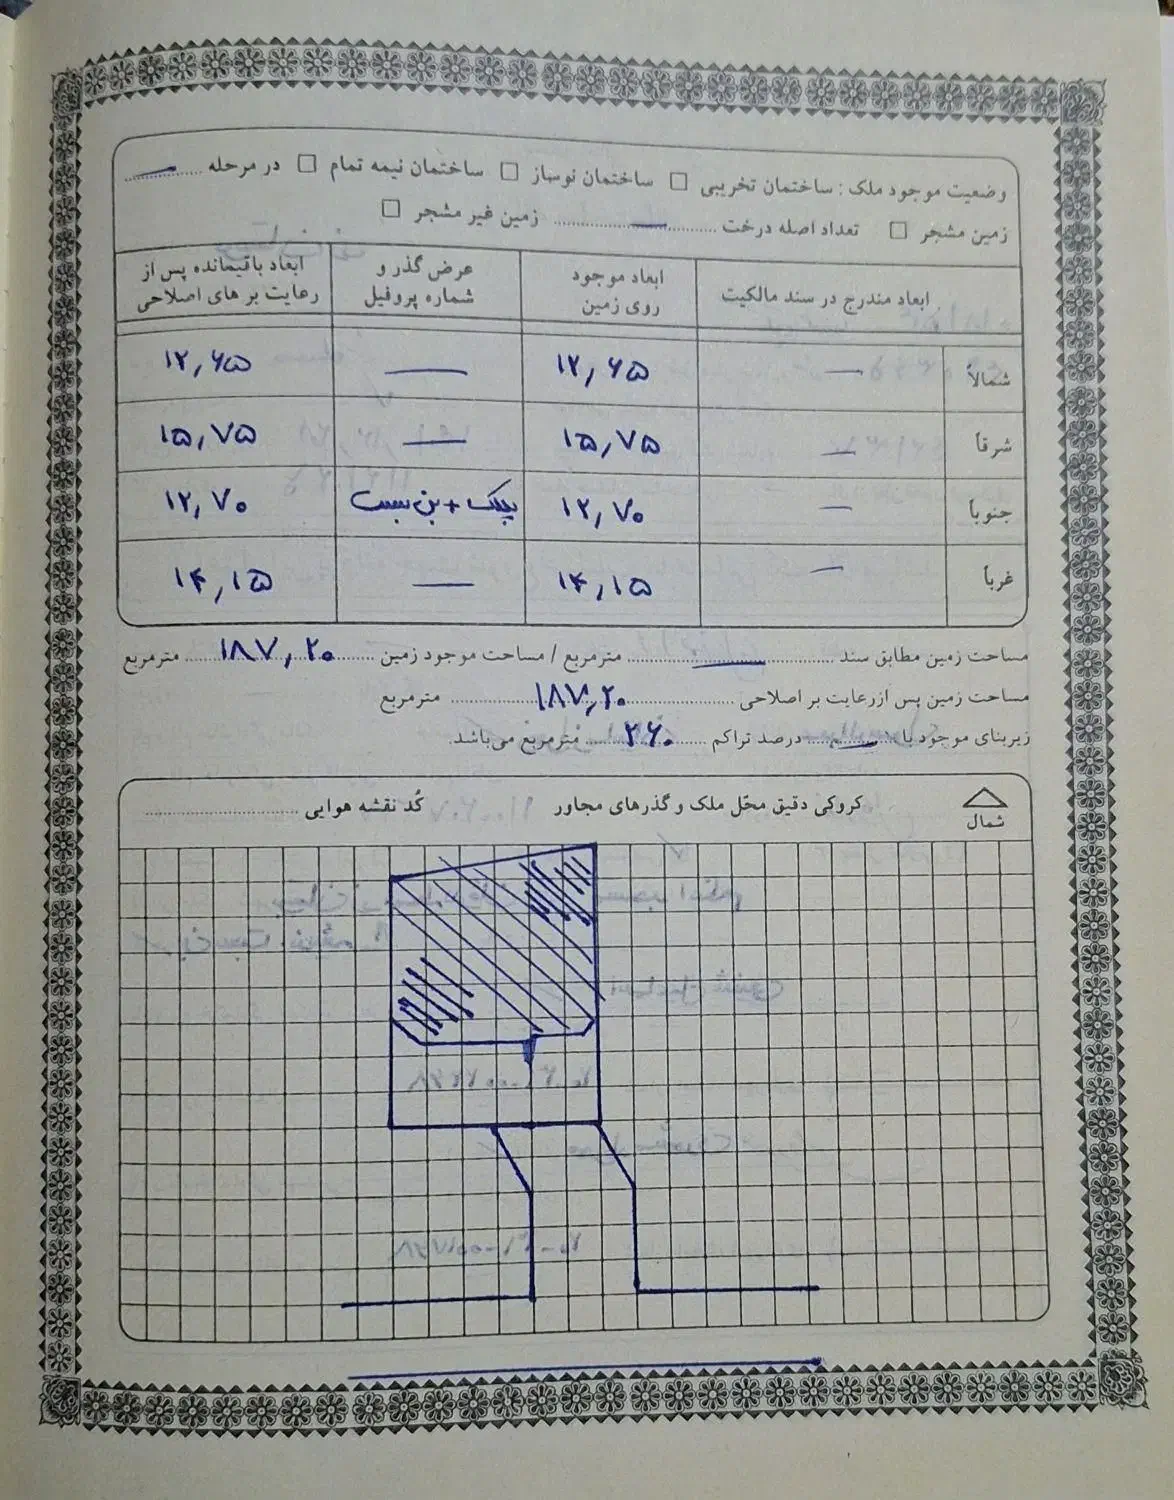 وضعیت موجود ملک : ساختمان تخریبی □ ساختمان نوساز □ ساختمان نیمه تمام □ در مرحله ..........
زمین مشجر □ تعداد اصله درخت .......... زمین غیر مشجر □
ابعاد مندرج در سند مالکیت | ابعاد موجود روی زمین | عرض گذر و شماره پروفیل | ابعاد باقیمانده پس از رعایت بر های اصلاحی
شمالاً — ۱۲,۶۵ — ۱۲,۶۵
شرقاً — ۱۵,۷۵ — ۱۵,۷۵
جنوباً — ۱۲,۷۰ پیلک + بن بست ۱۲,۷۰
غرباً — ۱۴,۱۵ — ۱۴,۱۵
مساحت زمین مطابق سند .......... مترمربع / مساحت موجود زمین ۱۸۷,۲۰ مترمربع
مساحت زمین پس ازرعایت بر اصلاحی ۱۸۷,۲۰ مترمربع
زیربنای موجود با .......... درصد تراکم ۲۶۰ مترمربع می‌باشد.
شمال
کروکی دقیق محّل ملک و گذرهای مجاور کُد نقشه هوایی ..........